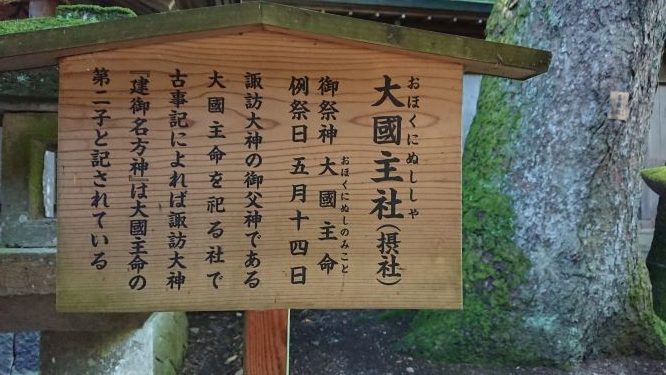 おほくにぬししゃ
大國主社(摂社)
おほくにぬしのみこと
御祭神 大國主命
例祭日 五月十四日
諏訪大神の御父神である
大國主命を祀る社で
古事記によれば諏訪大神
『建御名方神』は大國主命の
第二子と記されている